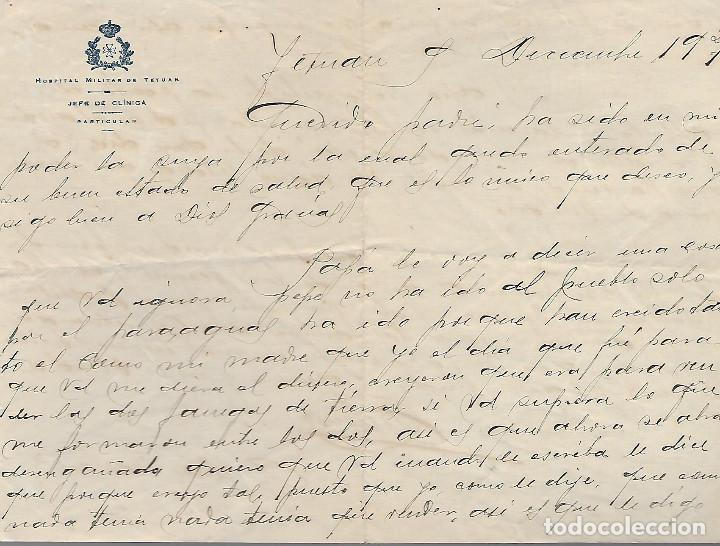 HOSPITAL MILITAR DE TETUAN
JEFE DE CLÍNICA
PARTICULAR
Tetuan 9 Diciembre 19
Querido padre, ha sido en mi
poder la suya por la cual quedo enterado de
su buen estado de salud que es lo unico que deseo, yo
sigo bien a Dios gracias
Papá le voy a decir una cosa
que Vd ignora, Pepe no ha ido al pueblo solo
por el paraguas ha ido porque han creido tan
to el como mi madre que yo el dia que fué para
que Vd me diera el dinero, creyeron que era para ven
der las dos fanegas de tierra, si Vd supiera lo que
me formaron entre los dos, asi es que ahora se abra
desengañado quiero que Vd cuando le escriba le dice
que porque creyo tal, puesto que yo, como le dije, que como
nada tenia nada tenia que vender, asi es que le digo
todocoleccion